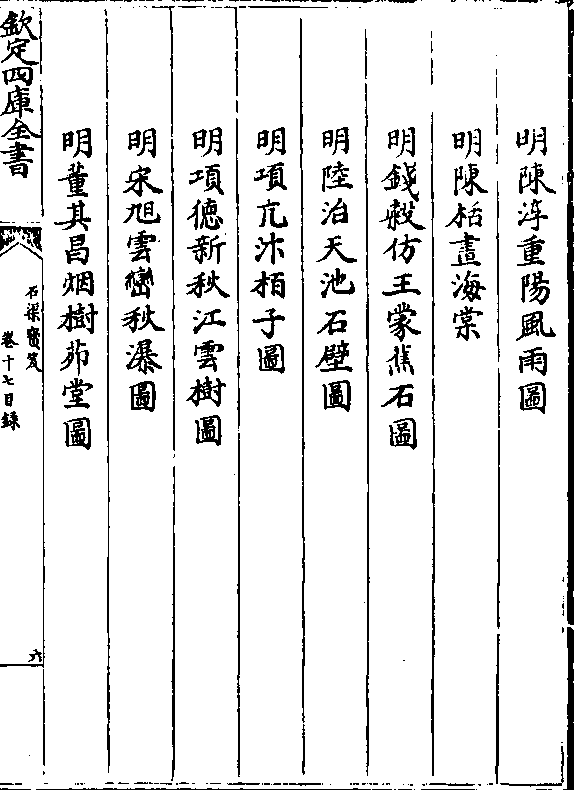 明陳淳重陽風雨圖
明陳栝畫海棠
明錢穀仿王蒙焦石圖
明陸治天池石壁圖
明項元汴栢子圖
明項德新秋江雲樹圖
明宋旭雲巒秋瀑圖
明董其昌烟樹茆堂圖
欽定四庫全書
石渠寶笈
卷十七目録
六